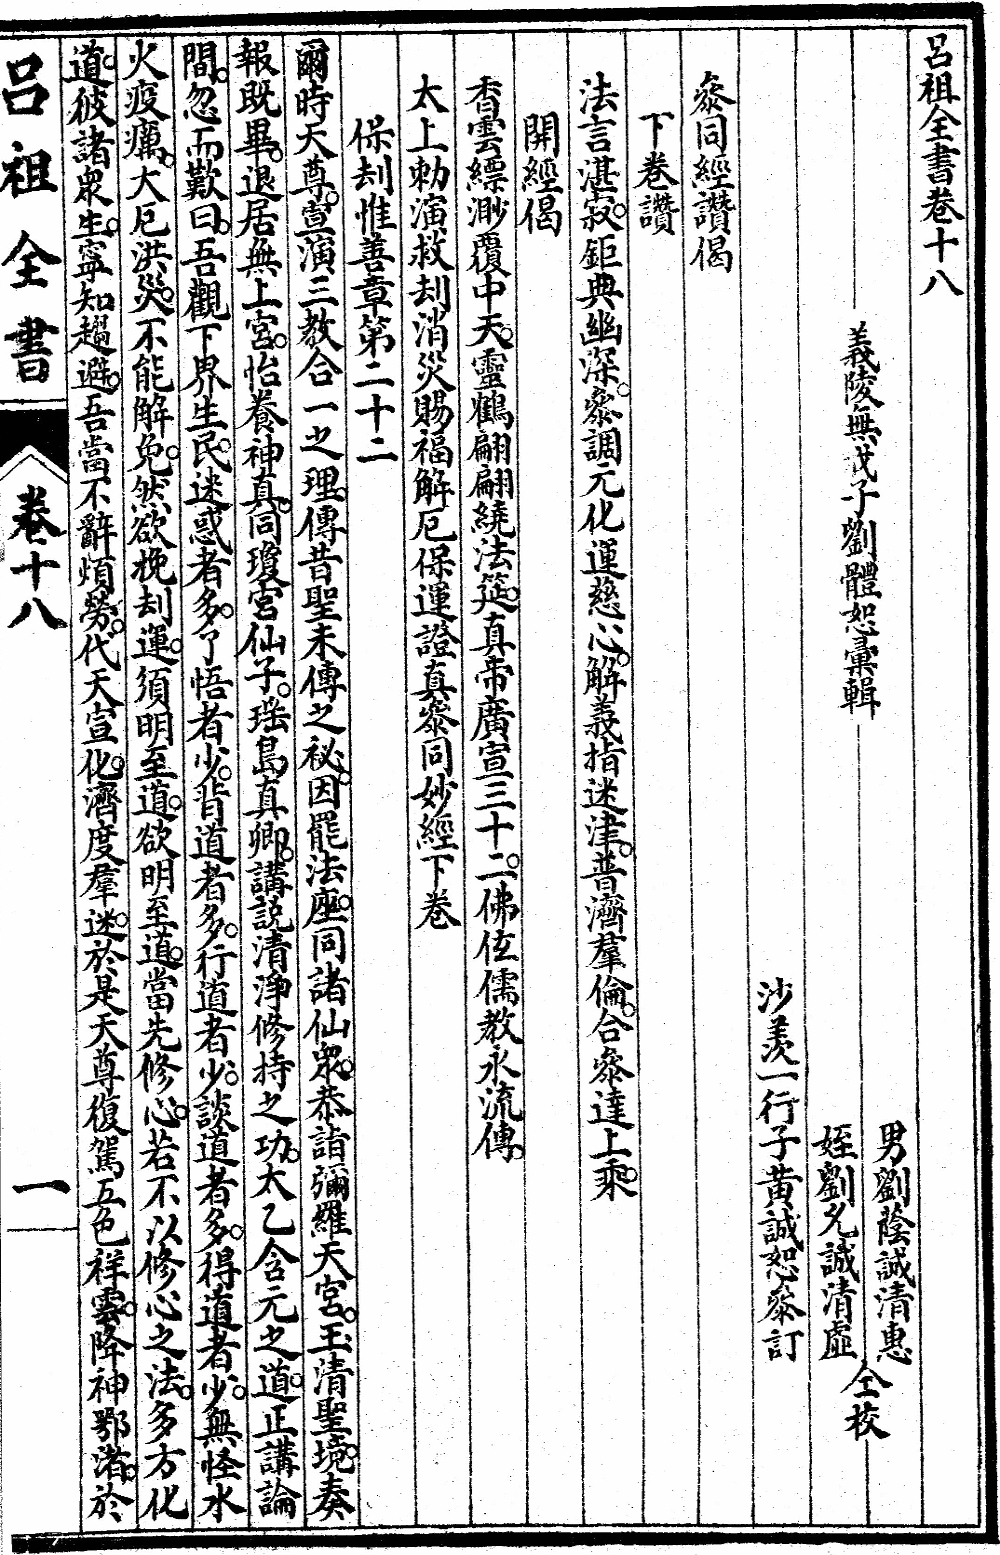 呂祖全書卷十八
義陵無我子劉體恕彙輯
男劉蔭誠清惠
姪劉允誠清虛
仝校
沙羡一行子黃誠恕叅訂
叅同經讚偈
下卷讚
法言湛寂。鉅典幽深。叅調元化運慈心。解義指迷津。普濟羣倫。合叅達上乘。
開經偈
香雲縹渺覆中天。靈鶴翩翩繞法筵。真帝廣宣三十二。佛伭儒教永流傳。
太上勅演救刦消災賜福解厄保運證真叅同妙經下卷
保刦惟善章第二十二
爾時天尊。宣演三教合一之理。傳昔聖未傳之祕。因罷法座。同諸仙衆。恭詣彌羅天宮。玉清聖境。奏
報既畢。退居無上宮。怡養神真。同瓊宮仙子。瑶島真卿。講説清淨修持之功。太乙含元之道。正講論
間。忽而歎曰。吾觀下界生民。迷惑者多。了悟者少。背道者多。行道者少。談道者多。得道者少。無怪水
火疫癘。大厄洪災。不能解免。然欲挽刦運。須明至道。欲明至道。當先修心。若不以修心之法。多方化
道。彼諸衆生。寧知趨避。吾當不辭煩勞。代天宣化。濟度羣迷。於是天尊復駕五色祥雲。降神鄂渚。於
呂祖全書
卷十八
一